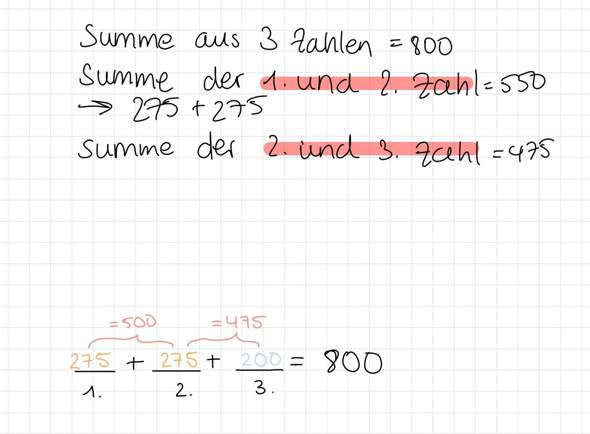 Summe aus 3 Zahlen = 800
Summe der 1. und 2. Zahl = 550
→ 275 + 275
Summe der 2. und 3. Zahl = 475
=500 =475
275 + 275 + 200 = 800
1. 2. 3.